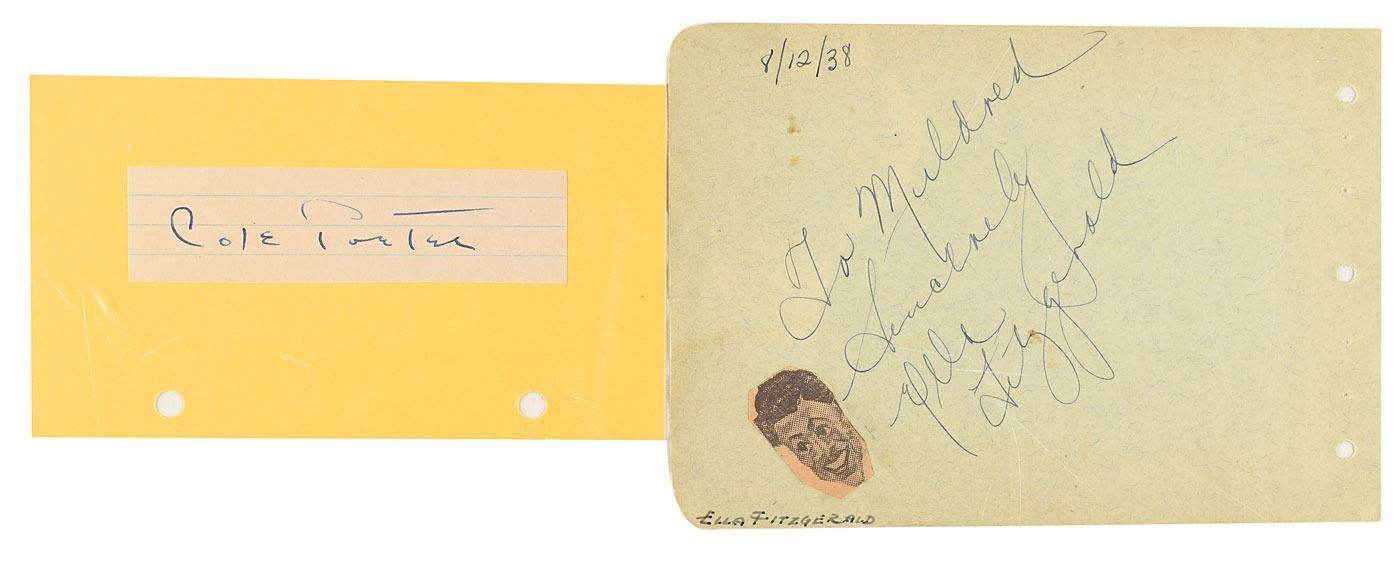 Cole Porter
8/12/38
To Mildred
Sincerely
Ella
Fitzgerald
ELLA FITZGERALD